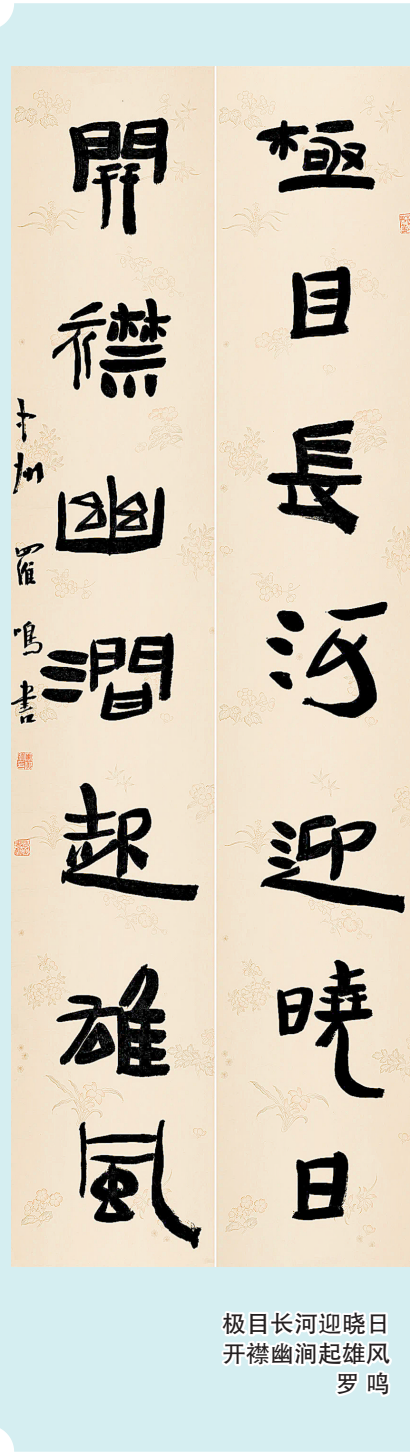 極目長河迎曉日
開襟幽澗起雄風
州 羅鳴書
极目长河迎晓日
开襟幽涧起雄风
罗 鸣